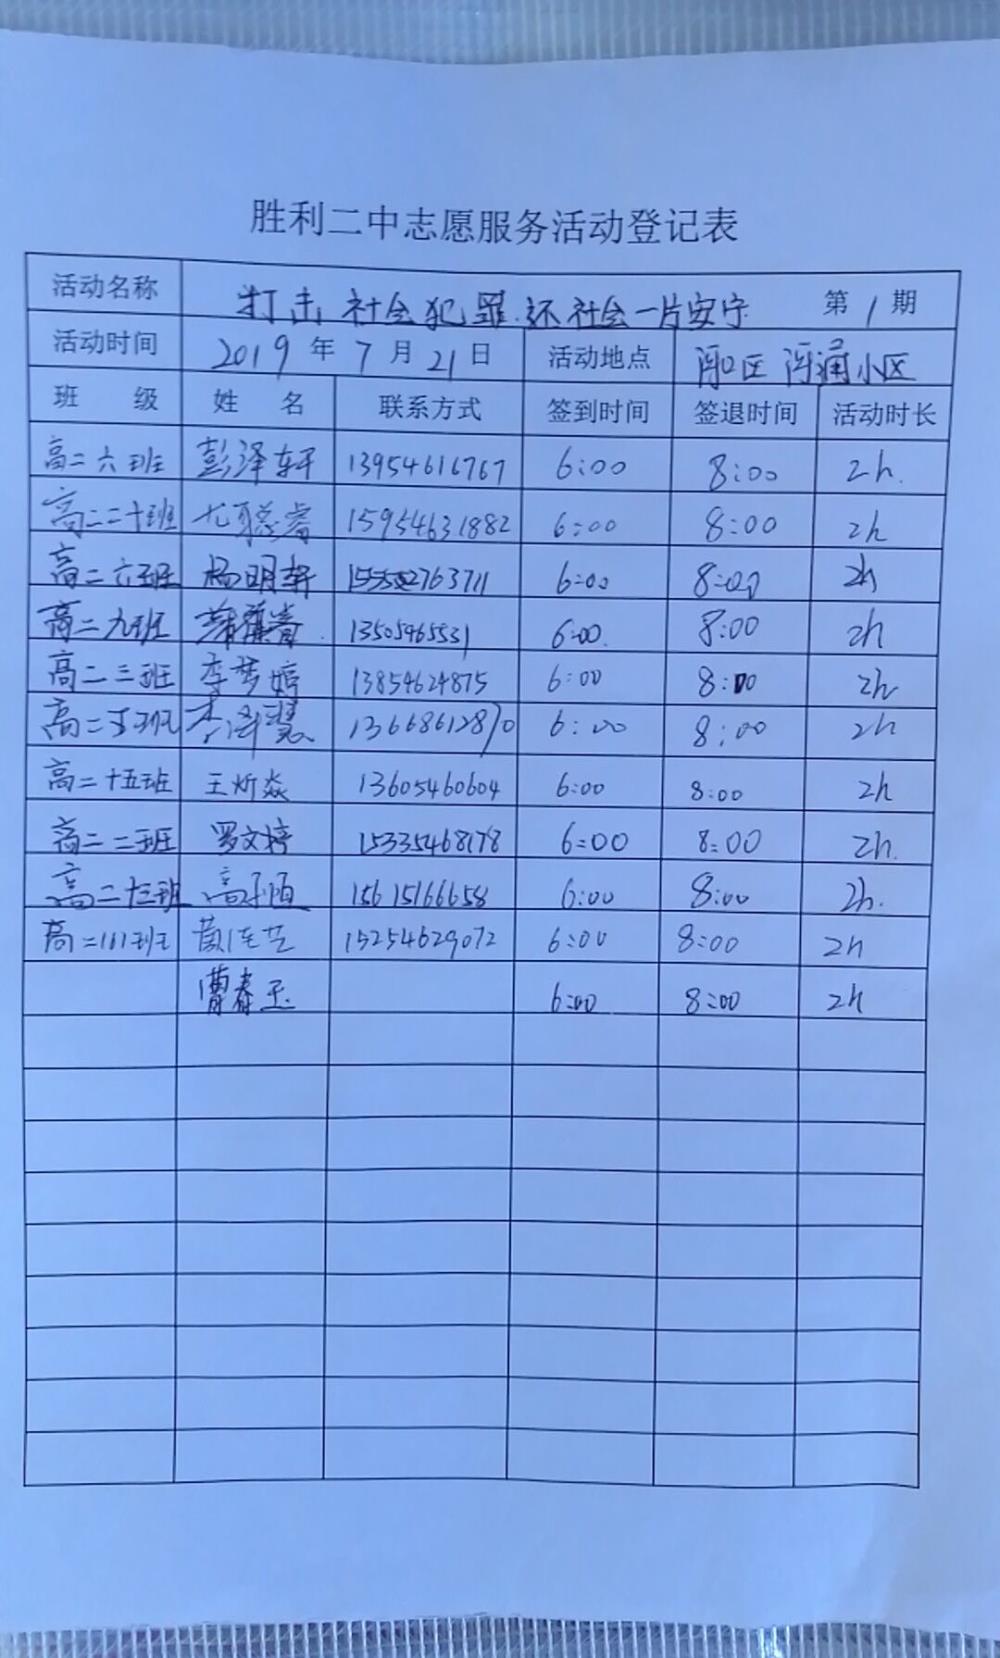 胜利二中志愿服务活动登记表
活动名称 打击社会犯罪.还社会一片安宁 第1期
活动时间 2019年7月21日 活动地点 河口区 河涌小区
班 级 姓 名 联系方式 签到时间 签退时间 活动时长
高二六班 彭泽轩 13954616767 6:00 8:00 2h.
高二二十班 尤聪睿 15954631882 6:00 8:00 2h
高二六班 杨明轩 2763711 6:00 8:00 2h
高二九班 13505465531 6:00. 8:00 2h
高二三班 李梦婷 13854624875 6:00 8:00 2h
高二五班 李泽慧 13668612870 6:00 8:00 2h
高二十五班 王炘焱 13605460604 6:00 8:00 2h
高二二班 罗文婷 15335468178 6:00 8:00 2h.
高二十三班 高子恒 15615166658 6:00 8:00 2h.
高二 班 15254629072 6:00 8:00 2h
曹春玉 6:00 8:00 2h